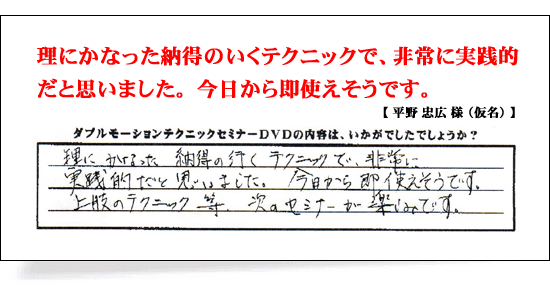 理にかなった納得のいくテクニックで、非常に実践的
だと思いました。今日から即使えそうです。
【 平野 忠広 様（仮名）】
ダブルモーションテクニックセミナーDVDの内容は、いかがでしたでしょうか？
理に かなった 納得の行く テクニックで、非常に
実践的だと思いました。 今日から 即 使えそうです。
上肢のテクニック 等、次のセミナーが 楽しみです。